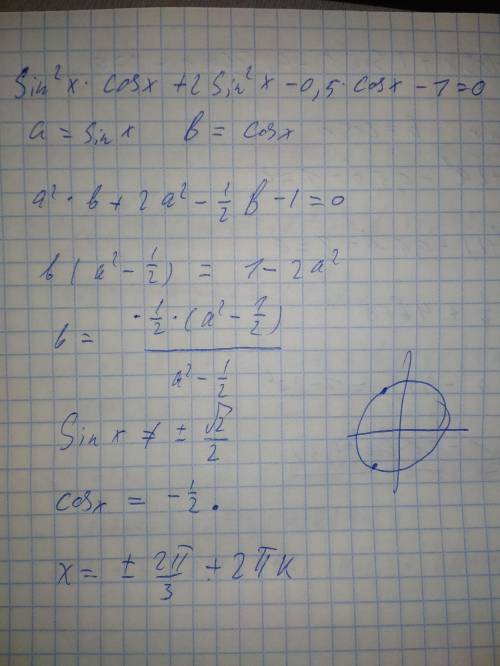 sin²x · cosx + 2 sin²x - 0,5 · cosx - 1 = 0
a = sin x    b = cosx
a² · b + 2a² - 1/2 b - 1 = 0
b (a² - 1/2) = 1 - 2a²
b = - 1/2 · (a² - 1/2) / (a² - 1/2)
Sin x ≠ ± √2/2
cosx = - 1/2 .
x = ± 2π/3 + 2πk